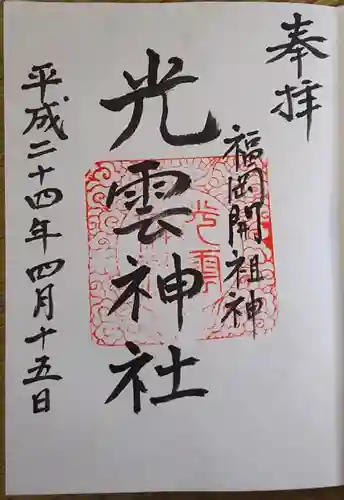 奉拝
福岡開祖神
光雲神社
平成二十四年四月十五日